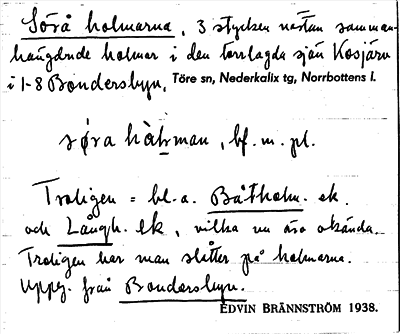 Sörå holmarna, 3 stycken nästan samman-
hängande holmar i den torrlagda sjön Kosjärv
i 1-8 Bondersbyn, Töre sn, Nederkalix tg, Norrbottens l.
søra hòlman, bf. m. pl.
Troligen = bl.a. Båtholm. ek.
och Långh. ek, vilka nu äro okända.
Troligen har man slåtter på holmarna.
Uppg. från Bondersbyn.
EDVIN BRÄNNSTRÖM 1938.